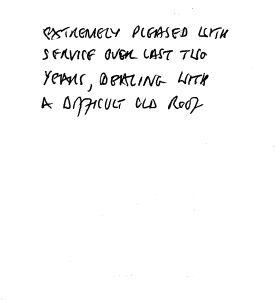 EXTREMELY PLEASED WITH
SERVICE OVER LAST TWO
YEARS, DEALING WITH
A DIFFICULT OLD ROOF